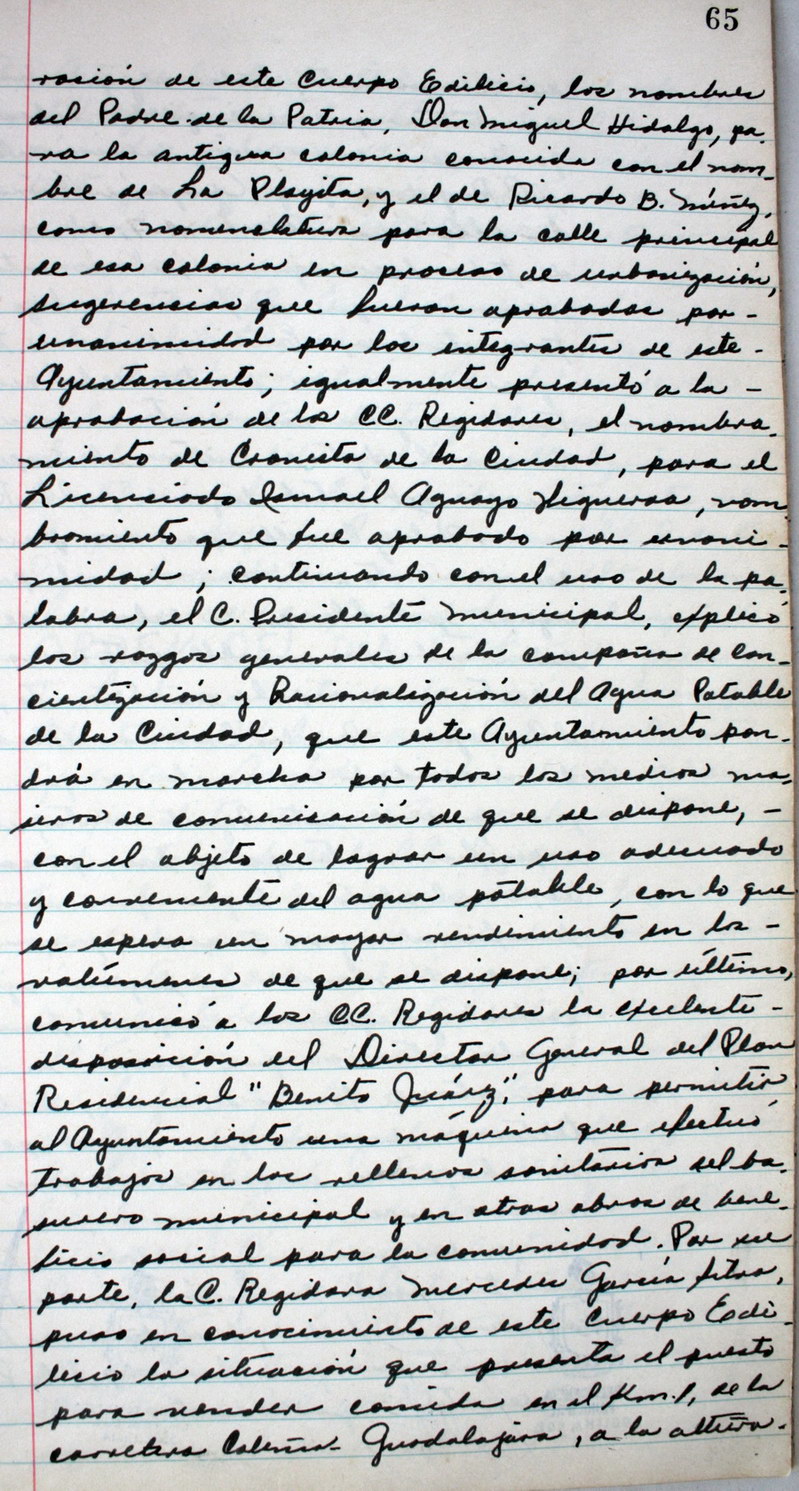 65
ración de este Cuerpo Edilicio, los nombres
del Padre de la Patria, Don Miguel Hidalgo, pa-
ra la antigua colonia conocida con el nom-
bre de La Playita, y el de Ricardo B. Núñez,
como nomenclatura para la calle principal
de esa colonia en proceso de urbanización,
sugerencias que fueron aprobadas por -
unanimidad por los integrantes de este -
Ayuntamiento; igualmente presentó a la -
aprobación de los CC. Regidores, el nombra-
miento de Cronista de la Ciudad, para el
Licenciado Ismael Aguayo Figueroa, nom
bramiento que fue aprobado por unani-
midad; continuando con el uso de la pa-
labra, el C. Presidente Municipal, explicó
los razgos generales de la campaña de Con-
cientización y Racionalización del Agua Potable
de la Ciudad, que este Ayuntamiento pon-
drá en marcha por todos los medios ma-
sivos de comunicación de que se dispone, -
con el objeto de lograr un uso adecuado
y conveniente del agua potable, con lo que
se espera un mayor rendimiento en los -
volúmenes de que se dispone; por último,
comunicó a los CC. Regidores la excelente -
disposición del Director General del Plan
Residencial "Benito Juárez", para permitir
al Ayuntamiento una máquina que efectuó
trabajos en los rellenos sanitarios del ba-
surero municipal y en otras obras de bene-
ficio social para la comunidad. Por su
parte, la C. Regidora Mercedes García
puso en conocimiento de este Cuerpo Edi-
licio la situación que presenta el puesto
para vender comida en el Km. 1, de la
carretera Colima - Guadalajara, a la altura -